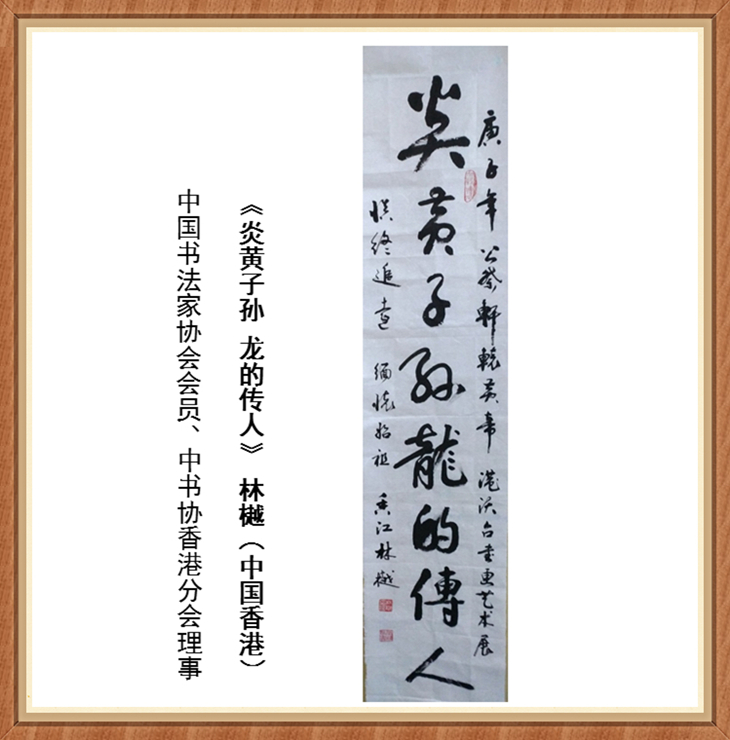 庚子年 公祭軒轅黄帝 港沃台書画艺术展
炎黄子孙龍的傳人
慎终追远 缅懷始祖 香江林樾
《炎黄子孙 龙的传人》 林樾（中国香港）
中国书法家协会会员、中书协香港分会理事